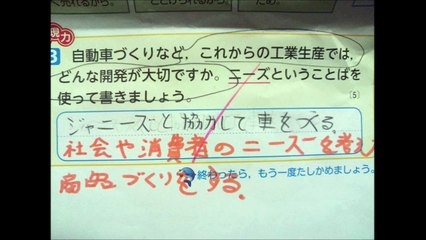 現力
3 自動車づくりなど，これからの工業生産では，
どんな開発が大切ですか。ニーズということばを
使って書きましょう。
〔5〕
ジャニーズと協力して車をつくる。
社会や消費者のニーズを考え
商品づくりをする。
終わったら，もう一度たしかめましょう。